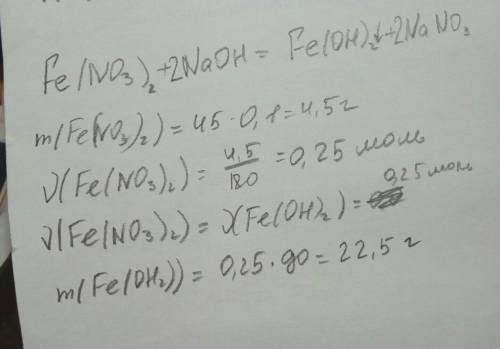 Fe(NO₃)₂+2NaOH = Fe(OH)₂↓+2NaNO₃
m(Fe(NO₃)₂) = 45·0,1=4,5г
ν(Fe(NO₃)₂) = 4,5/180 =0,25 моль
ν(Fe(NO₃)₂) = ν(Fe(OH)₂) = 0,25 моль
m(Fe(OH₂)) = 0,25·90 = 22,5 г